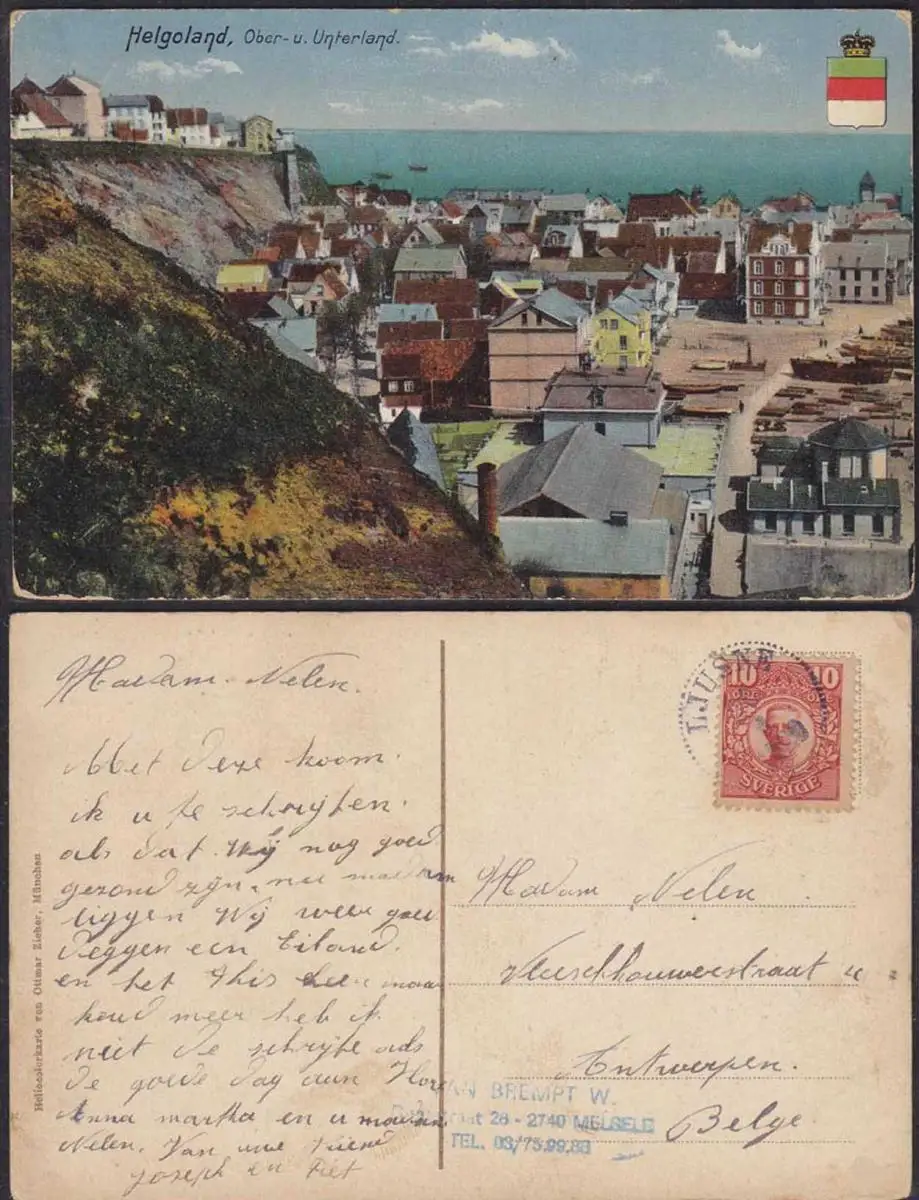 Helgoland, Ober- u. Unterland.
Madam. Nelen.
Met deze koom.
ik u te schrijfen.
als dat Wij nog goed
gezond zijn. nu madam
liggen Wij weer
een Eiland.
en het this maar
koud meer heb ik
niet de schrijfe als
de goede dag aan
Anna martha en u madam
Nelen. Van uwe vriend
Joseph en Piet
Heliocolorkarte von Ottmar Zieher, München
LJUSNE
10 10
ÖRE
SVERIGE
Madam Nelen.
Vleeschhouwerstraat
Antwerpen.
Belge
VAN BREMPT W.
28 - 2740 MELSELE
TEL. 03/75.99.88